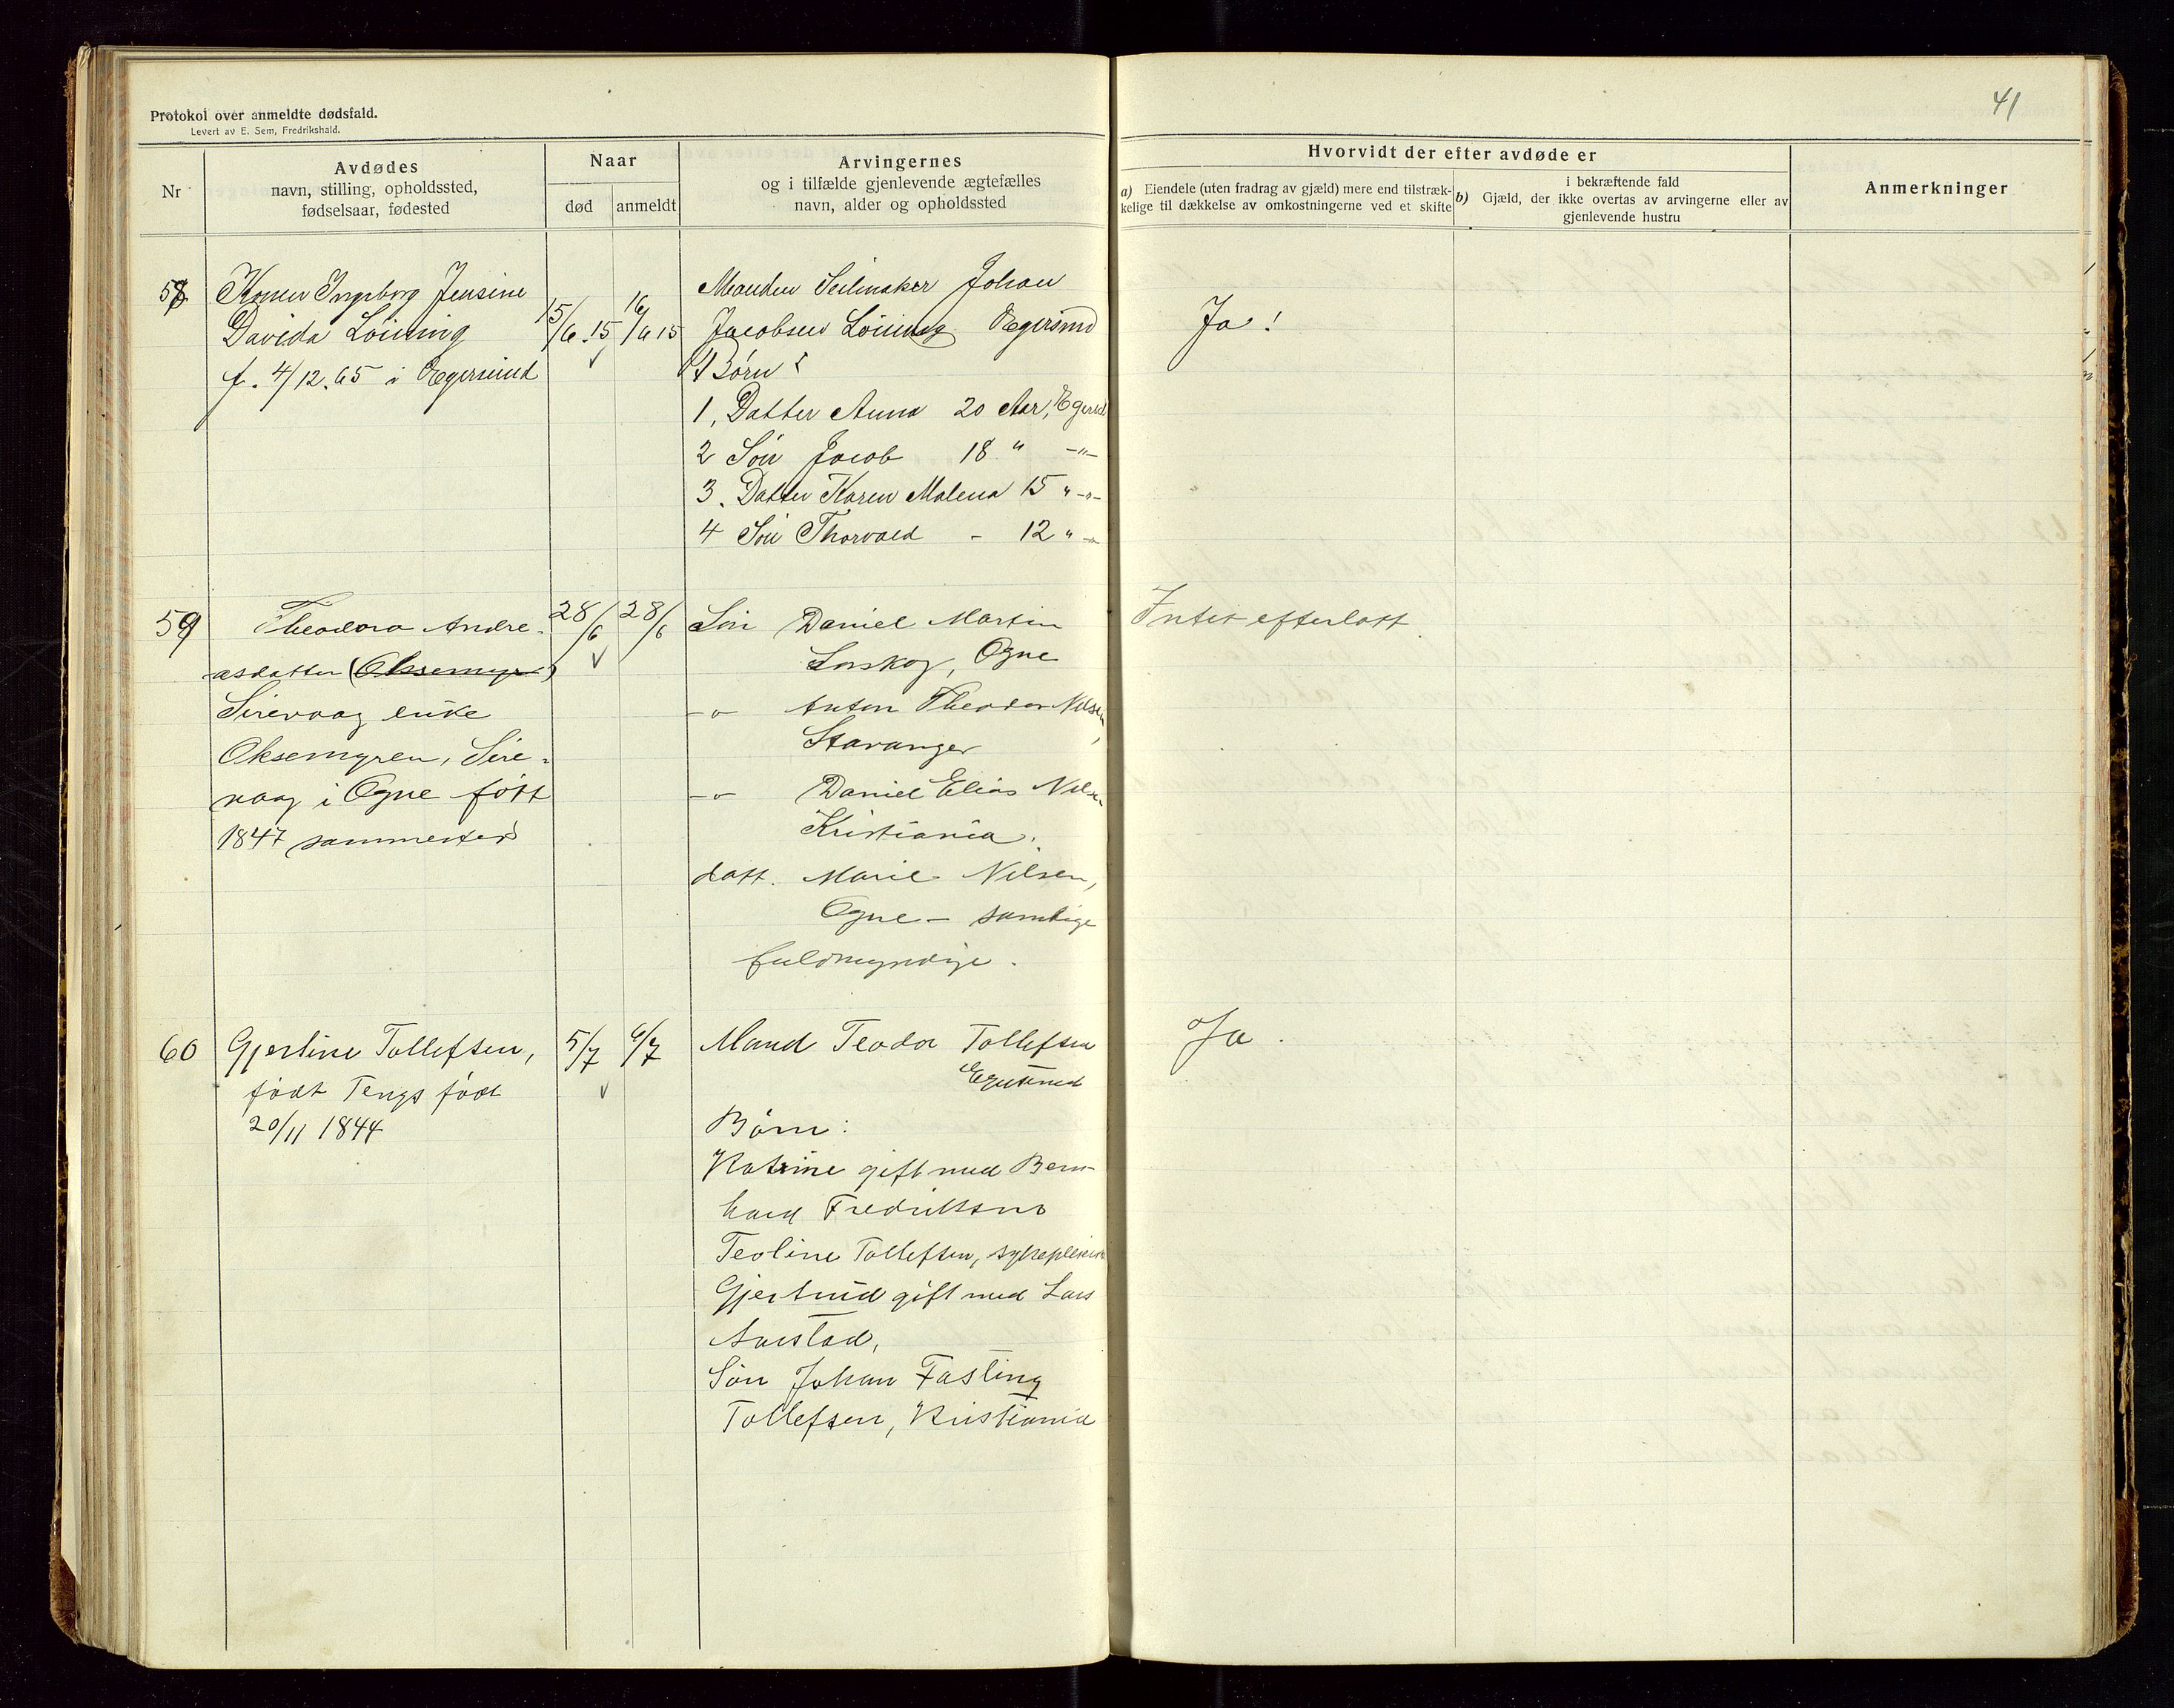 Protokol over anmeldte dødsfald.
Levert av E. Sem, Fredrikshald.
41
Nr
Avdødes
navn, stilling, opholdssted,
fødselsaar, fødested
Naar
død
anmeldt
Arvingernes
og i tilfælde gjenlevende ægtefælles
navn, alder og opholdssted
Hvorvidt der efter avdøde er
a) Eiendele (uten fradrag av gjæld) mere end tilstræk-
kelige til dækkelse av omkostningerne ved et skifte
i bekræftende fald
b) Gjæld, der ikke overtas av arvingerne eller av
gjenlevende hustru
Anmerkninger
58
Konen Ingeborg Jensine
Davida Löining
f. 4/12.65 i Egersund
15/6.15
16/6 15
Manden Seilmaker Johan
Jacobsen Löining Egersund
4 Börn:
1, Datter Anna 20 Aar, Egersd
2 Sön Jacob 18 " -"-
3. Datter Karen Malena 15 " -"-
4 Sön Thorvald - 12 " -"-
Ja!
59
Theodora Andre-
asdatter (Oksemyr)
Sirevaag enke
Oksemyren, Sire-
vaag i Ogne født
1847 sammested
28/6
28/6
Søn Daniel Martin
Ogne
-"- Anton Theodor Nilsen,
Stavanger
-"- Daniel Elias Nilsen
Kristiania.
datt. Marie Nilsen,
Ogne - samtlige
fuldmyndige.
Intet efterlatt.
60
Gjertine Tollefsen,
født Tengs född
20/11 1844
5/7
6/7
Mand Teodor Tollefsen
Egersund
Börn:
Katrine gift med Bern-
hard Fredriksen
Teoline Tollefsen, sykepleierske
Gjertrud gift med Lars
Aarstad,
Sön Johan Fasting
Tollefsen, Kristiania
Ja.